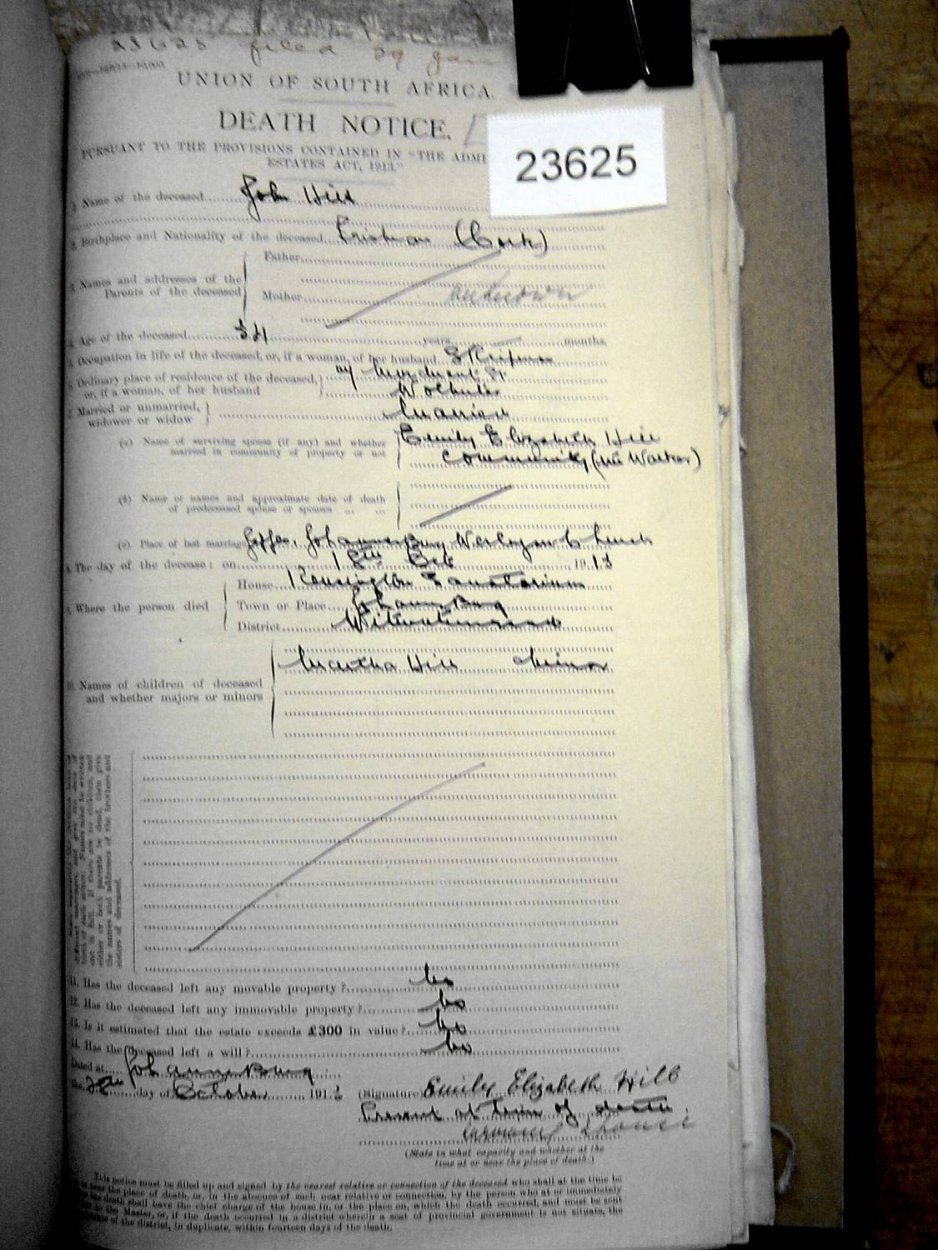 23625 filed 29 Jan
UNION OF SOUTH AFRICA.
DEATH NOTICE.
23625
PURSUANT TO THE PROVISIONS CONTAINED IN "THE ADMI
ESTATES ACT, 1913."
1. Name of the deceased John Hill
2. Birthplace and Nationality of the deceased (Cork)
3. Names and addresses of the Parents of the deceased
Father
Mother
unknown
4. Age of the deceased 34 years months
5. Occupation in life of the deceased, or, if a woman, of her husband
6. Ordinary place of residence of the deceased, or, if a woman, of her husband St
7. Married or unmarried, widower or widow Married
(a) Name of surviving spouse (if any) and whether married in community of property or not
Emily Elizabeth Hill
community (née Walker)
(b) Name or names and approximate date of death of predeceased spouse or spouses
(c) Place of last marriage Jeppes, Johannesburg Wesleyan Church
8. The day of the decease: on 18th 1913
9. Where the person died
House Kensington Sanatorium
Town or Place Johannesburg
District Witwatersrand
10. Names of children of deceased and whether majors or minors
Martha Hill minor
either or both parents be dead, then give
the names and addresses of the brothers and
sisters of deceased.
11. Has the deceased left any movable property? No
12. Has the deceased left any immovable property? No
13. Is it estimated that the estate exceeds £300 in value? No
14. Has the deceased left a will? No
Dated at Johannesburg
the day of October 1913
(Signature) Emily Elizabeth Hill
Present at time of death
(State in what capacity and whether at the
time at or near the place of death.)
This notice must be filled up and signed by the nearest relative or connection of the deceased who shall at the time be
near the place of death, or, in the absence of such near relative or connection, by the person who at or immediately
the death shall have the chief charge of the house in, or the place on, which the death occurred, and must be sent
to the Master, or, if the death occurred in a district wherein a seat of provincial government is not situate, the
of the district, in duplicate, within fourteen days of the death.